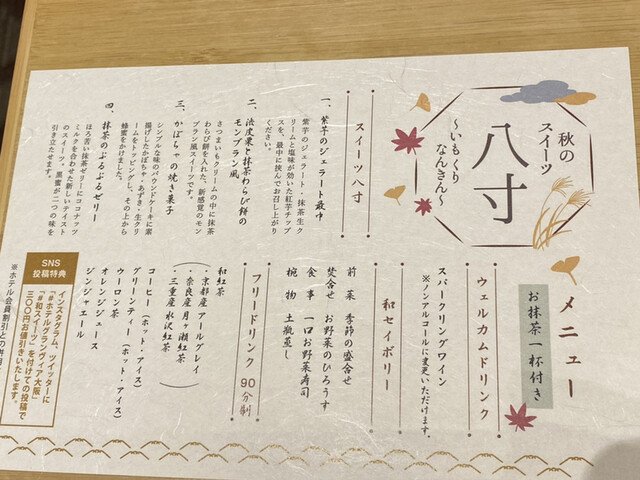 秋の
スイーツ
八寸
〜いもくり
なんきん〜
メニュー
お抹茶一杯付き
ウェルカムドリンク
スパークリングワイン
※ノンアルコールに変更いただけます。
和セイボリー
前菜 季節の盛合せ
焚合せ お野菜のひろうす
食事 一口お野菜寿司
椀物 土瓶蒸し
フリードリンク 90分制
和紅茶
（・京都産アールグレイ
・奈良産月ヶ瀬紅茶
・三重産水沢紅茶）
コーヒー（ホット・アイス）
グリーンティー（ホット・アイス）
ウーロン茶
オレンジジュース
ジンジャエール
スイーツ八寸
一、紫芋のジェラート最中
紫芋のジェラート・抹茶生ク
リームと塩味が効いた紅芋チップ
スを、最中に挟んでお召し上がり
ください。
二、渋皮栗と抹茶わらび餅の
モンブラン風
さつまいもクリームの中に抹茶
わらび餅を入れた、新感覚のモン
ブラン風スイーツです。
三、かぼちゃの焼き菓子
シンプルな味のパウンドケーキに素
揚げしたかぼちゃ・あずき・生クリ
ームをトッピングし、その上から
蜂蜜をかけました。
四、抹茶のぷるぷるゼリー
ほろ苦い抹茶ゼリーにココナッツ
ミルクを合わせた新しいテイスト
のスイーツ。黒蜜が二つの味を
引き立たせます。
SNS
投稿特典
インスタグラム、ツイッターに
「#ホテルグランヴィア大阪」
「#和スイーツ」を付けての投稿で
三〇〇円お値引きいたします。
※ホテル会員割引との併用